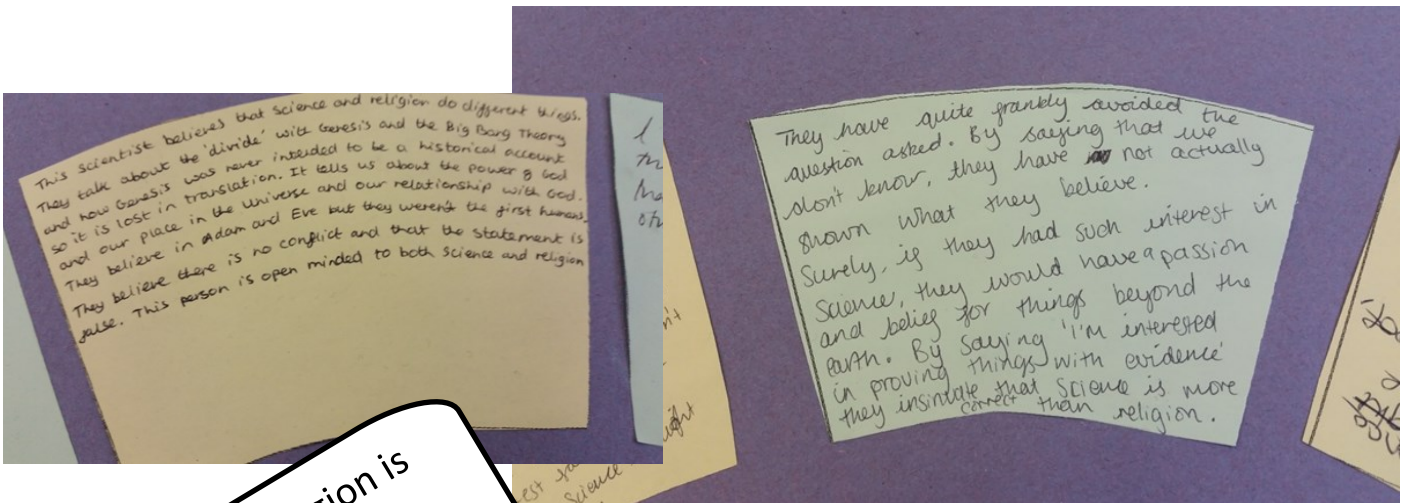 This Scientist believes that Science and religion do different things.
They talk about the 'divide' with Genesis and the Big Bang Theory
and how Genesis was never intended to be a historical account
so it is lost in translation. It tells us about the power of God
and our place in the universe and our relationship with God.
They believe in Adam and Eve but they weren't the first humans.
They believe there is no conflict and that the statement is
false. This person is open minded to both Science and religion
They have quite frankly avoided the
question asked. By saying that we
don't know, they have not actually
shown what they believe.
Surely, if they had such interest in
Science, they would have a passion
and belief for things beyond the
earth. By saying 'I'm interested
in proving things with evidence'
they insinuate that Science is more
correct than religion.
is
Science